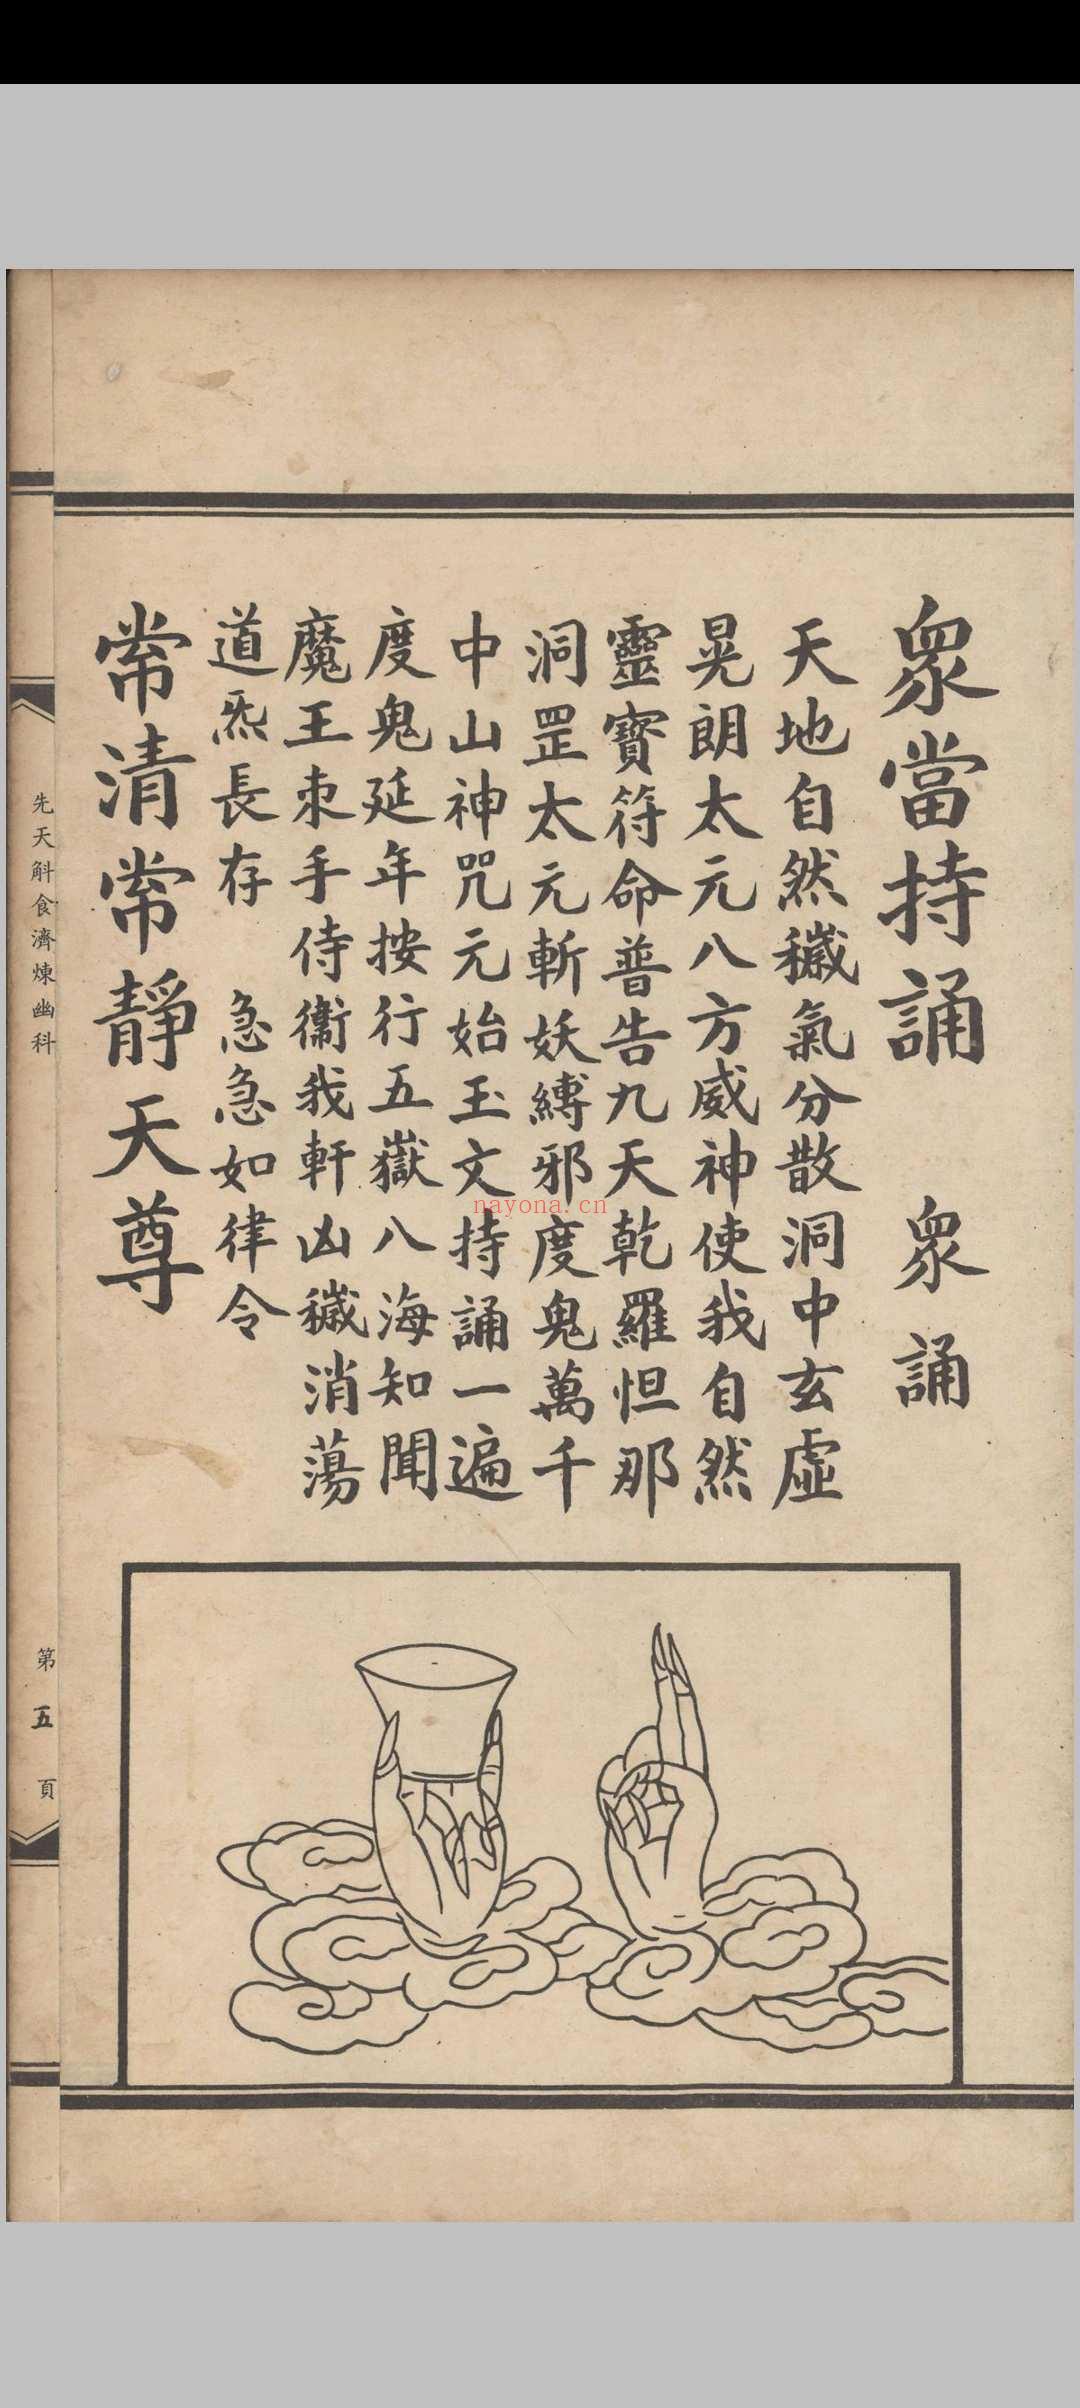 眾當持誦　眾誦
天地自然穢氣分散洞中玄虛
晃朗太元八方威神使我自然
靈寶符命普告九天乾羅怛那
洞罡太元斬妖縛邪度鬼萬千
中山神咒元始玉文持誦一遍
度鬼延年按行五嶽八海知聞
魔王朿手侍衞我軒凶穢消蕩
道炁長存　急急如律令
常清常靜天尊
先天斛食濟煉幽科
第五頁
nayona.cn